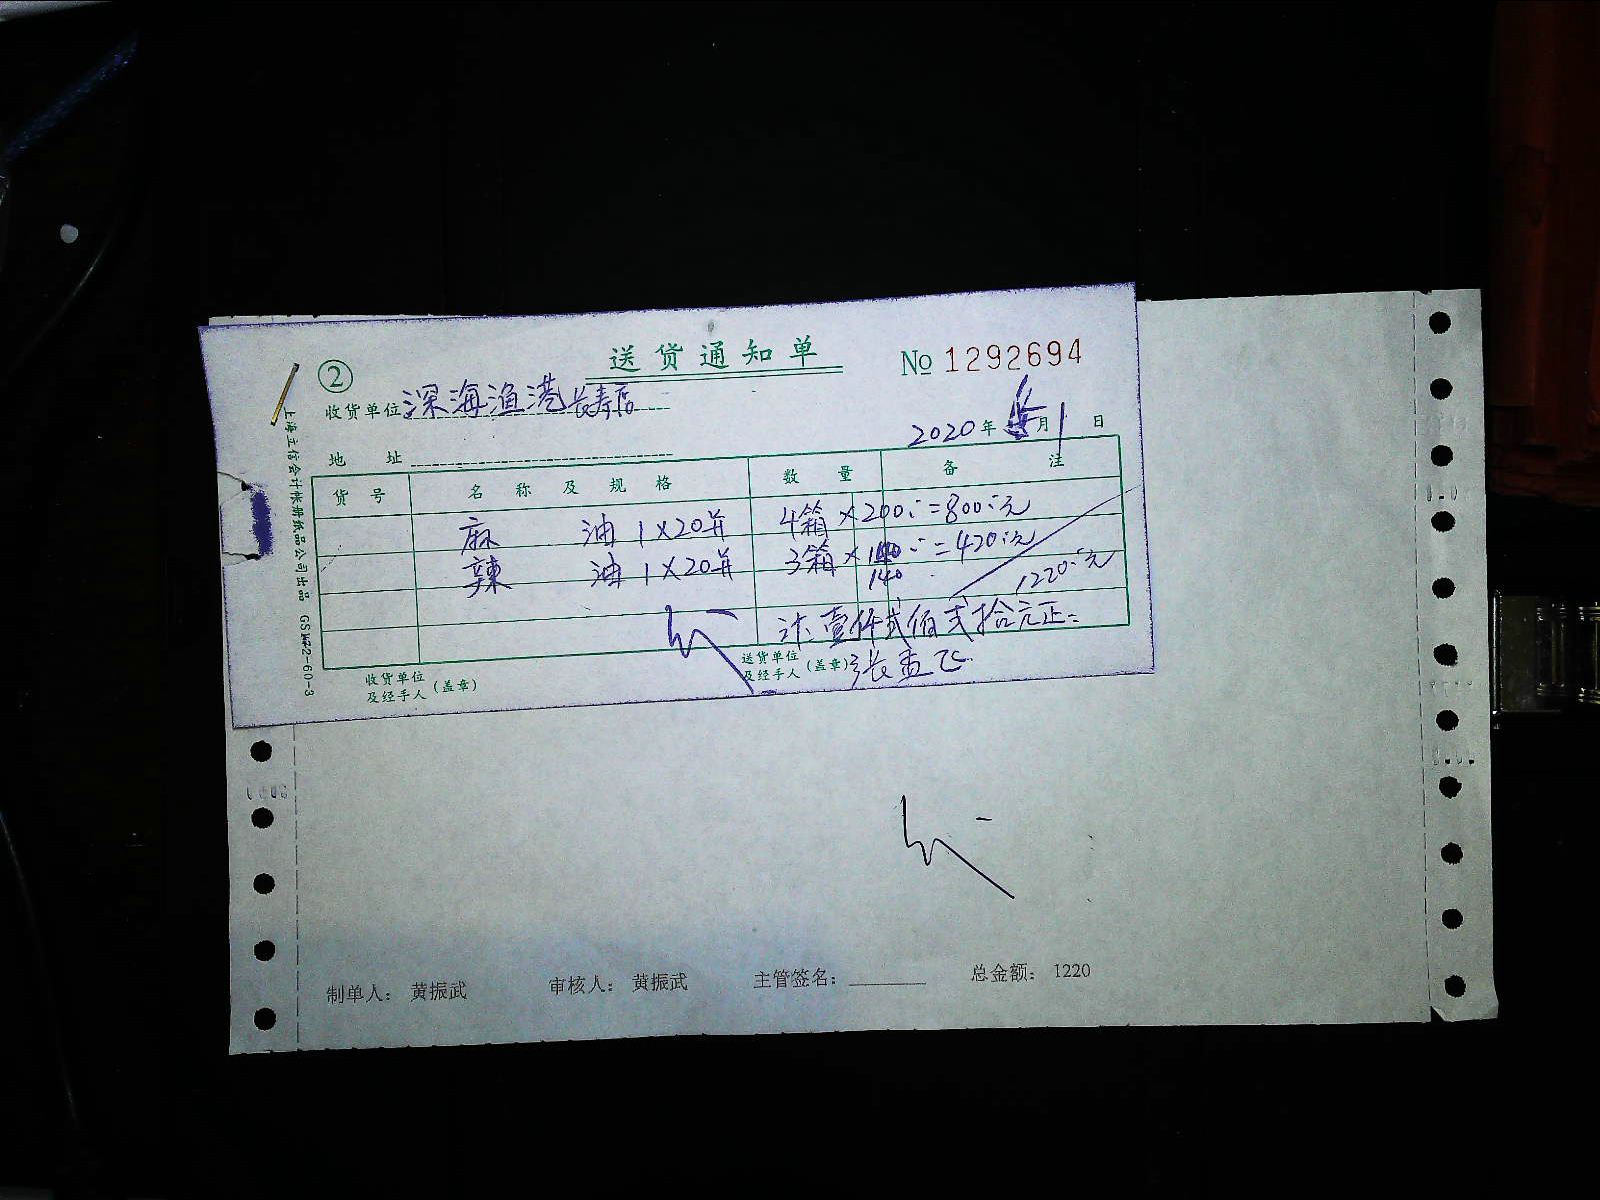 ② 送货通知单 №1292694
收货单位:深海渔港长寿店
2020年 月1日
地 址
货号 名称及规格 数量 备注
麻油 1×20并 4箱×200:=800:元
辣油 1×20并 3箱×140:=420:元
140
1220:元
计:壹仟贰佰贰拾元正:
收货单位及经手人(盖章)
送货单位及经手人(盖章) 张孟飞
上海立信会计帐册纸品公司出品 GS 2-60-3
制单人: 黄振武 审核人: 黄振武 主管签名: 总金额: 1220